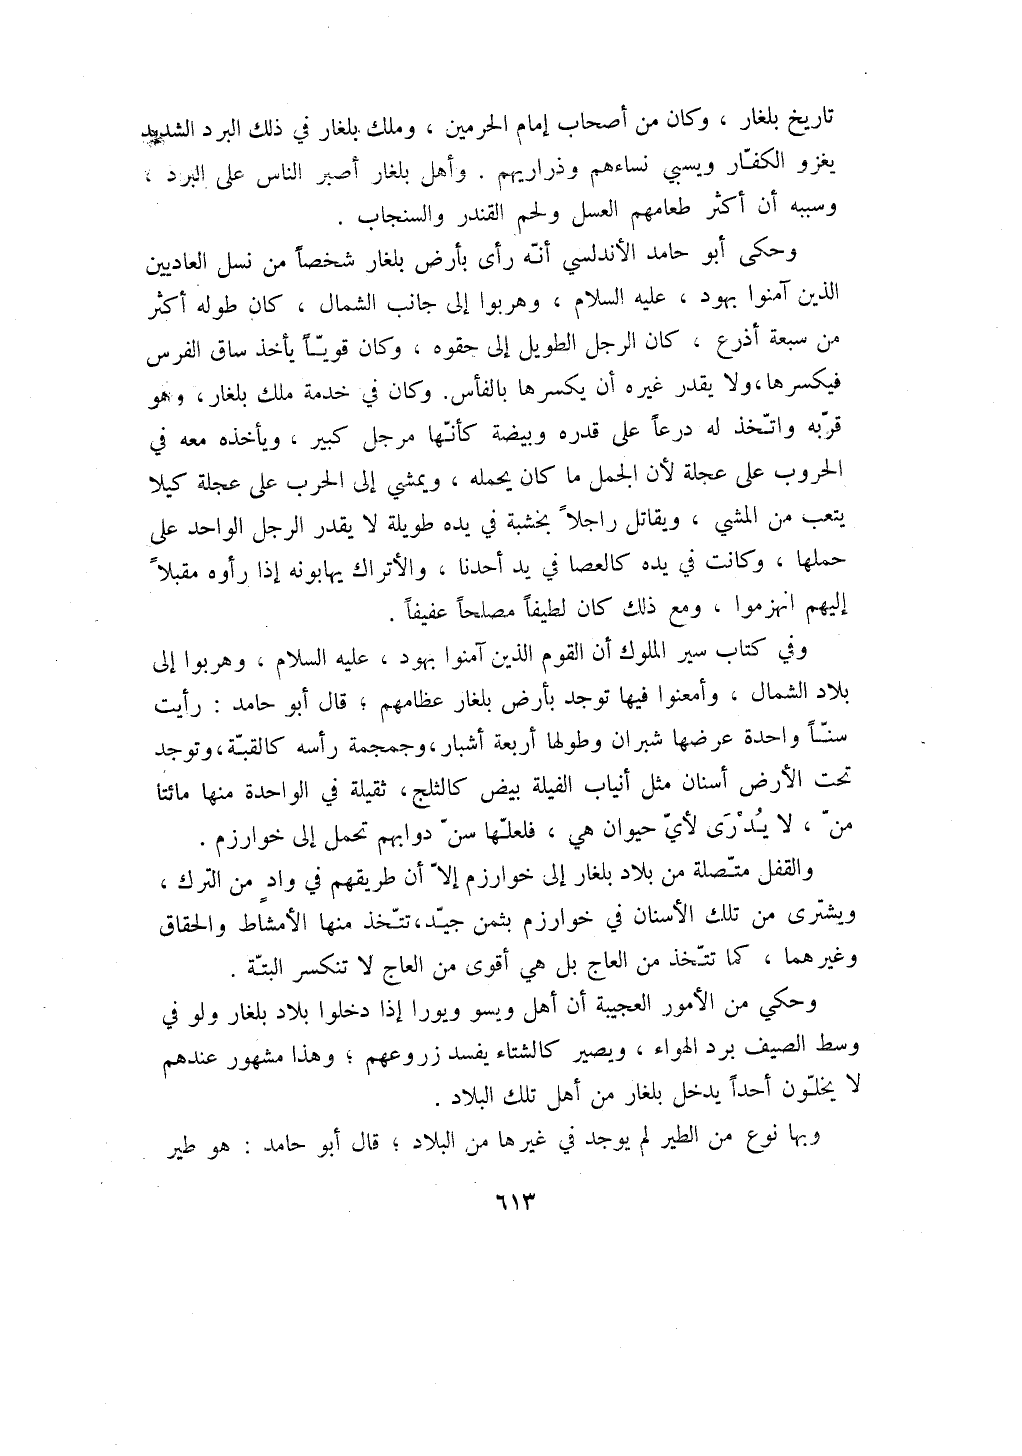 تاريخ بلغار ، وكان من أصحاب إمام الحرمين ، وملك بلغار في ذلك البرد الشديد
يغزو الكفّار ويسبي نساءهم وذراريهم . وأهل بلغار أصبر الناس على البرد ،
وسببه أن أكثر طعامهم العسل ولحم القندر والسنجاب .
وحكى أبو حامد الأندلسي أنّه رأى بأرض بلغار شخصاً من نسل العاديين
الذين آمنوا بهود ، عليه السلام ، وهربوا إلى جانب الشمال ، كان طوله أكثر
من سبعة أذرع ، كان الرجل الطويل إلى حقوه ، وكان قويّاً يأخذ ساق الفرس
فيكسرها،ولا يقدر غيره أن يكسرها بالفأس. وكان في خدمة ملك بلغار، وهو
قرّبه واتّخذ له درعاً على قدره وبيضة كأنّها مرجل كبير ، ويأخذه معه في
الحروب على عجلة لأن الجمل ما كان يحمله ، ويمشي إلى الحرب على عجلة كيلا
يتعب من المشي ، ويقاتل راجلاً بخشبة في يده طويلة لا يقدر الرجل الواحد على
حملها ، وكانت في يده كالعصا في يد أحدنا ، والأتراك يهابونه إذا رأوه مقبلاً
إليهم انهزموا ، ومع ذلك كان لطيفاً مصلحاً عفيفاً .
وفي كتاب سير الملوك أن القوم الذين آمنوا بهود ، عليه السلام ، وهربوا إلى
بلاد الشمال ، وأمعنوا فيها توجد بأرض بلغار عظامهم ؛ قال أبو حامد : رأيت
سنّاً واحدة عرضها شبران وطولها أربعة أشبار،وجمجمة رأسه كالقبّة،وتوجد
تحت الأرض أسنان مثل أنياب الفيلة بيض كالثلج، ثقيلة في الواحدة منها مائتا
منّ ، لا يُدْرَى لأيّ حيوان هي ، فلعلّها سنّ دوابهم تحمل إلى خوارزم .
والقفل متّصلة من بلاد بلغار إلى خوارزم إلاّ أن طريقهم في وادٍ من الترك ،
ويشترى من تلك الأسنان في خوارزم بثمن جيّد،تتّخذ منها الأمشاط والحقاق
وغيرهما ، كما تتّخذ من العاج بل هي أقوى من العاج لا تنكسر البتّة .
وحكي من الأمور العجيبة أن أهل ويسو ويورا إذا دخلوا بلاد بلغار ولو في
وسط الصيف برد الهواء ، ويصير كالشتاء يفسد زروعهم ؛ وهذا مشهور عندهم
لا يخلّون أحداً يدخل بلغار من أهل تلك البلاد .
وبها نوع من الطير لم يوجد في غيرها من البلاد ؛ قال أبو حامد : هو طير
٦١٣